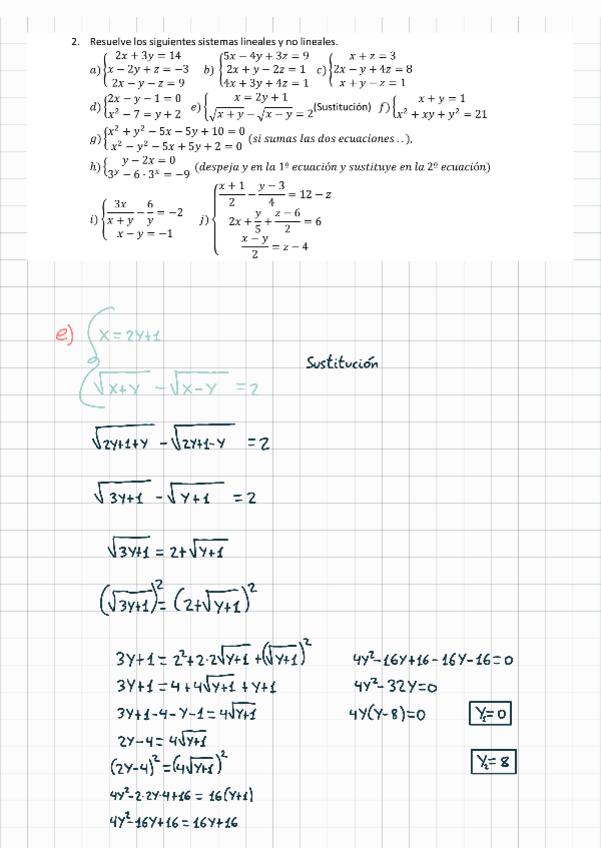 2. Resuelve los siguientes sistemas lineales y no lineales.
a) { 2x + 3y = 14 ; x − 2y + z = −3 ; 2x − y − z = 9 b) { 5x − 4y + 3z = 9 ; 2x + y − 2z = 1 ; 4x + 3y + 4z = 1 c) { x + z = 3 ; 2x − y + 4z = 8 ; x + y − z = 1
d) { 2x − y − 1 = 0 ; x² − 7 = y + 2 e) { x = 2y + 1 ; √(x + y) − √(x − y) = 2 (Sustitución) f) { x + y = 1 ; x² + xy + y² = 21
g) { x² + y² − 5x − 5y + 10 = 0 ; x² − y² − 5x + 5y + 2 = 0 (si sumas las dos ecuaciones ..),
h) { y − 2x = 0 ; 3^y − 6 · 3^x = −9 (despeja y en la 1ª ecuación y sustituye en la 2º ecuación)
i) { 3x/(x + y) − 6/y = −2 ; x − y = −1 j) { (x + 1)/2 − (y − 3)/4 = 12 − z ; 2x + y/5 + (z − 6)/2 = 6 ; (x − y)/2 = z − 4
e) { x = 2y+1
√(x+y) − √(x−y) = 2
Sustitución
√(2y+1+y) − √(2y+1−y) = 2
√(3y+1) − √(y+1) = 2
√(3y+1) = 2+√(y+1)
(√(3y+1))² = (2+√(y+1))²
3y+1 = 2²+2·2√(y+1) + (√(y+1))²
3y+1 = 4+4√(y+1) + y+1
3y+1−4−y−1 = 4√(y+1)
2y−4 = 4√(y+1)
(2y−4)² = (4√(y+1))²
4y²−2·2y·4+16 = 16(y+1)
4y²−16y+16 = 16y+16
4y²−16y+16−16y−16=0
4y²−32y=0
4y(y−8)=0 y₁=0
y₂=8